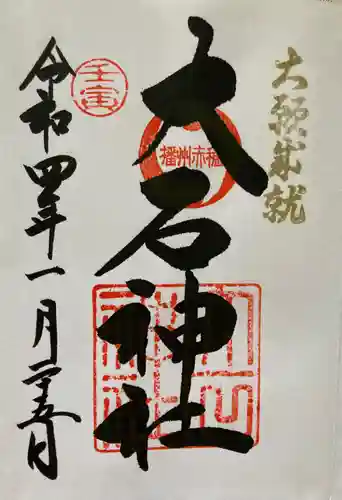 大願成就
播州赤穂
大石神社
壬寅
令和四年一月二十五日